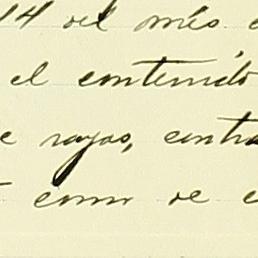 14 del mes
el contenido
e rayos, contra
como se e